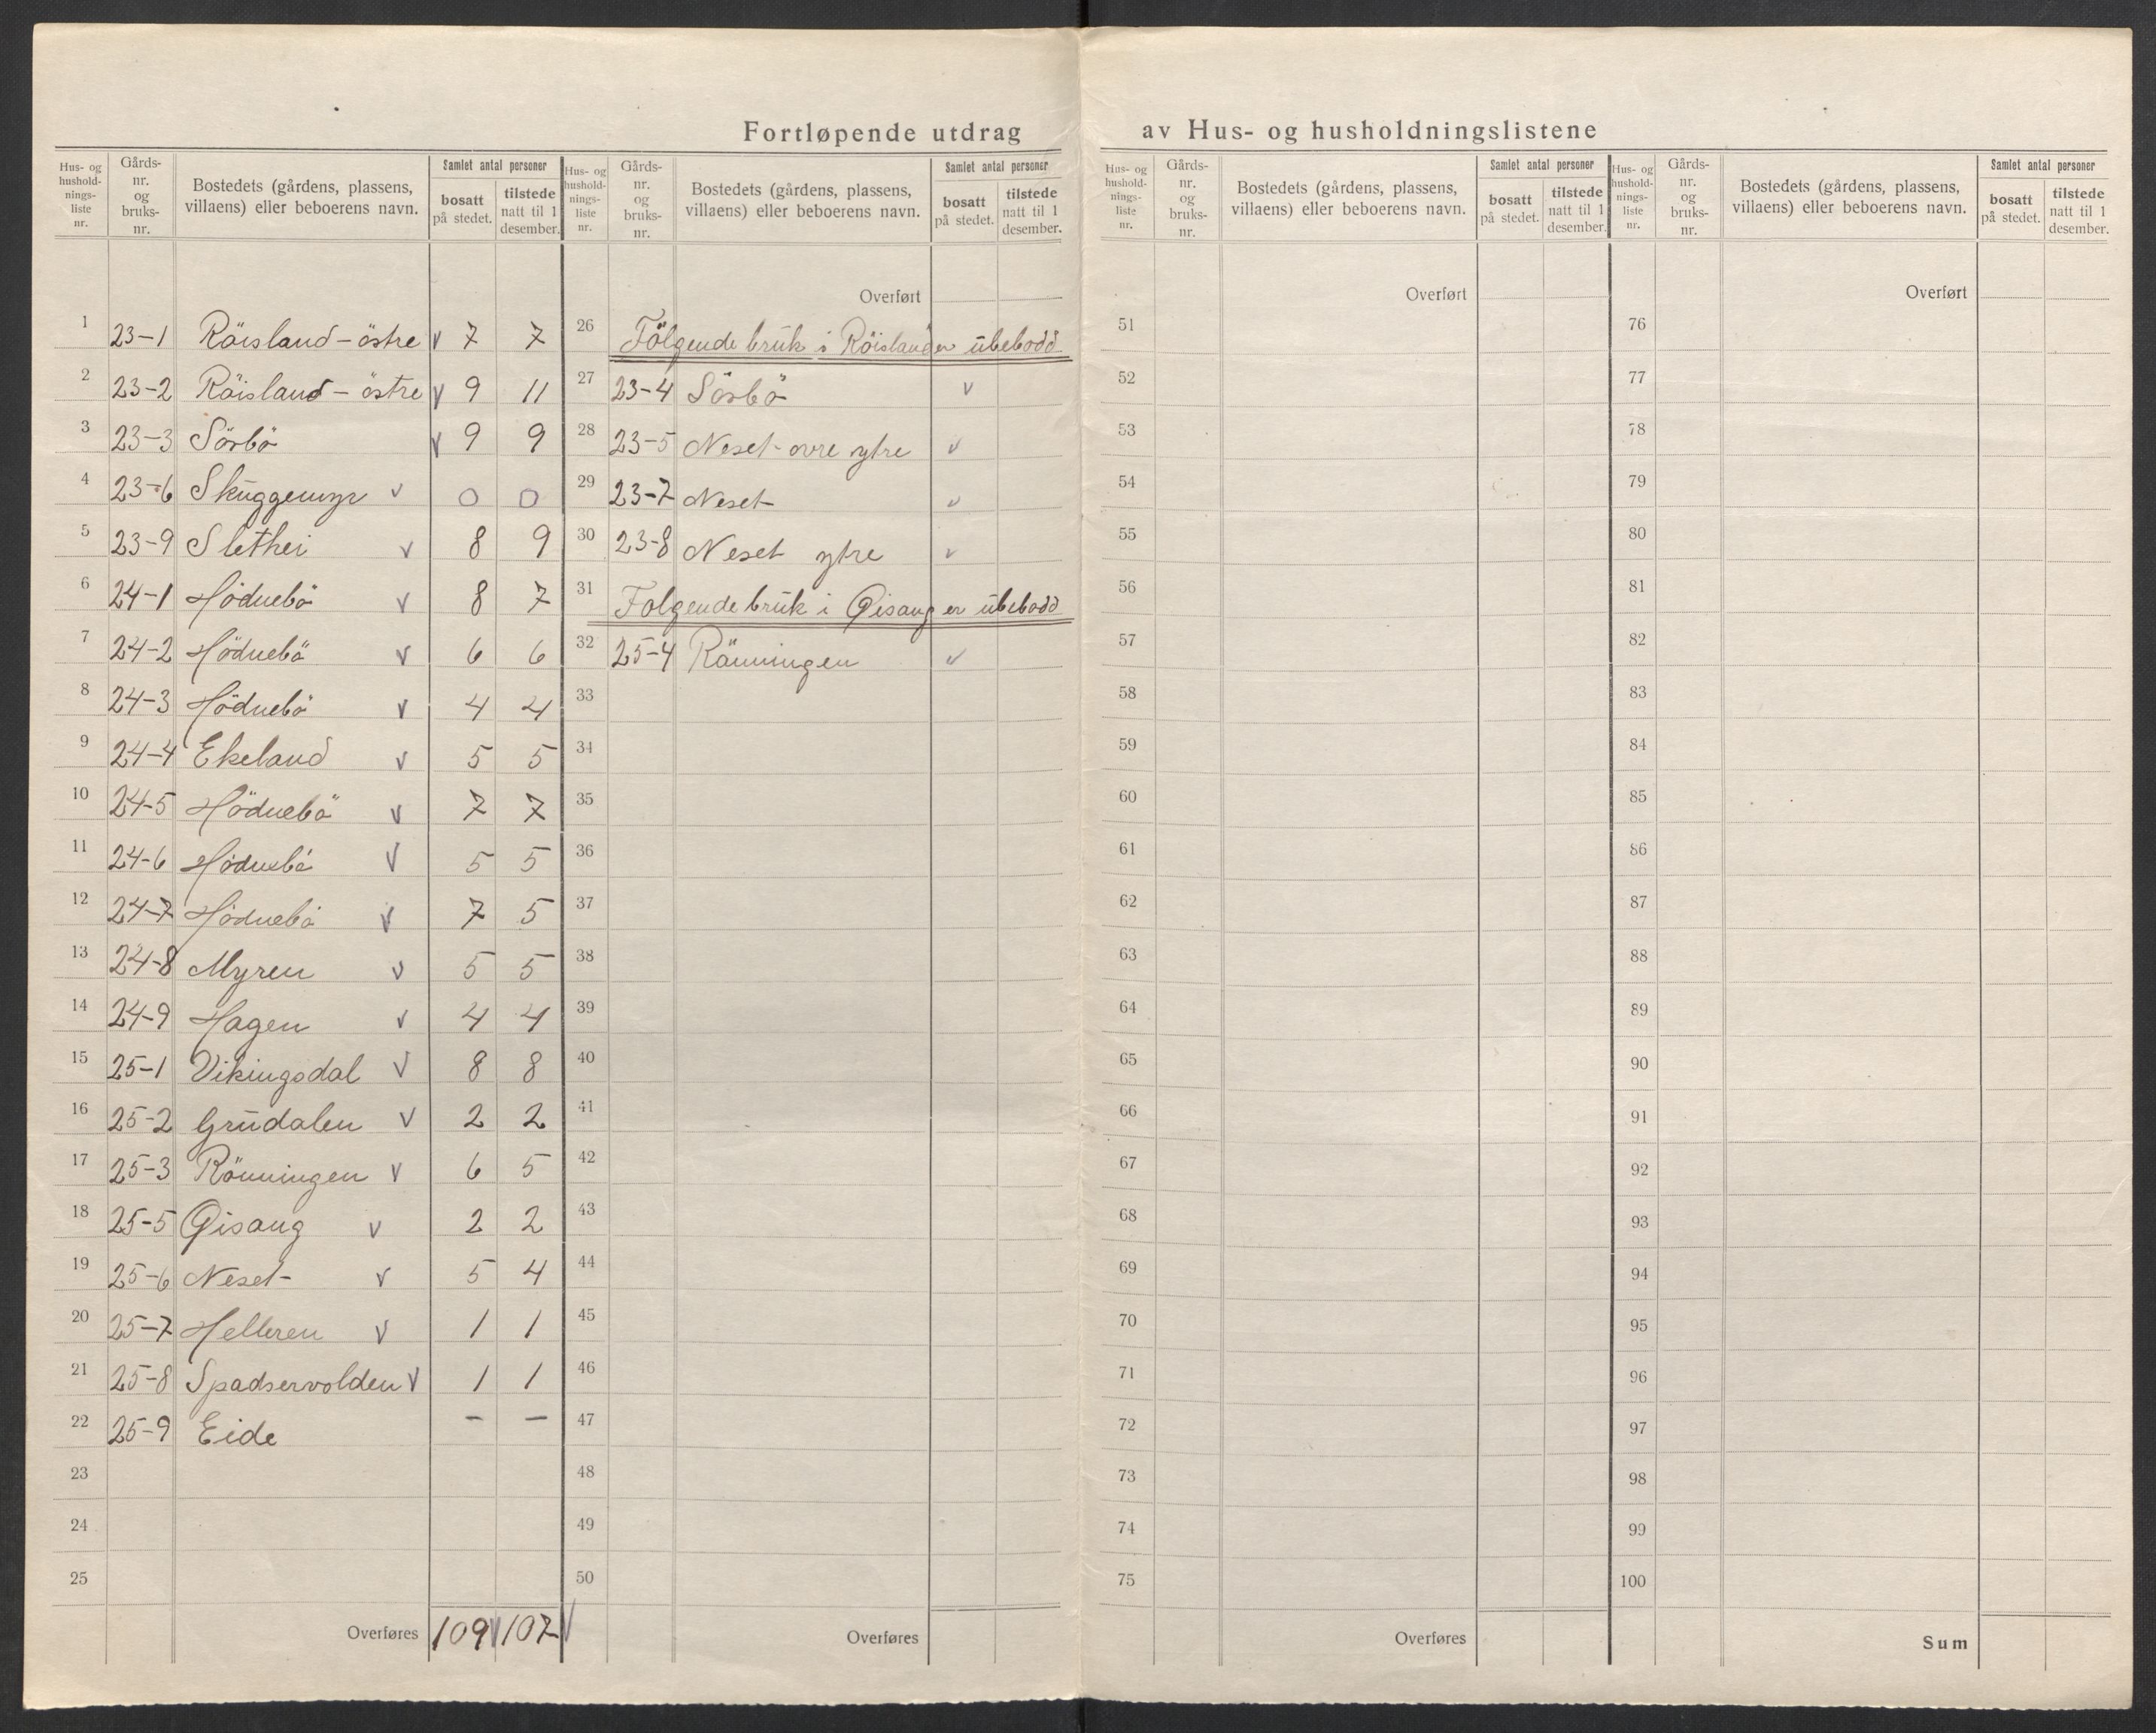 Fortløpende utdrag av Hus- og husholdningslistene
Hus- og husholdnings-liste nr. Gårds-nr. og bruks-nr. Bostedets (gårdens, plassens, villaens) eller beboerens navn. Samlet antal personer bosatt på stedet. tilstede natt til 1 desember.
1 23-1 Röisland-östre v 7 7
2 23-2 Röisland-östre v 9 11
3 23-3 Sörbö v 9 9
4 23-6 Skuggemyr v 0 0
5 23-9 Slethei v 8 9
6 24-1 Hödnebö v 8 7
7 24-2 Hödnebö v 6 6
8 24-3 Hödnebö v 4 4
9 24-4 Ekeland v 5 5
10 24-5 Hödnebö v 7 7
11 24-6 Hödnebö v 5 5
12 24-7 Hödnebö v 7 5
13 24-8 Myren v 5 5
14 24-9 Hagen v 4 4
15 25-1 Vikingsdal v 8 8
16 25-2 Grudalen v 2 2
17 25-3 Rönningen v 6 5
18 25-5 Gisang v 2 2
19 25-6 Neset v 5 4
20 25-7 Helleren v 1 1
21 25-8 Spadservolden v 1 1
22 25-9 Eide – –
23
24
25
Overføres 109 v 107 v
Hus- og husholdnings-liste nr. Gårds-nr. og bruks-nr. Bostedets (gårdens, plassens, villaens) eller beboerens navn. Samlet antal personer bosatt på stedet. tilstede natt til 1 desember.
Overført
26 Fölgende bruk i Röisland er ubebodd
27 23-4 Sörbö v
28 23-5 Neset ovre ytre v
29 23-7 Neset v
30 23-8 Neset ytre v
31 Folgende bruk i Gisang er ubebodd
32 25-4 Rönningen v
33
34
35
36
37
38
39
40
41
42
43
44
45
46
47
48
49
50
Overføres
Hus- og husholdnings-liste nr. Gårds-nr. og bruks-nr. Bostedets (gårdens, plassens, villaens) eller beboerens navn. Samlet antal personer bosatt på stedet. tilstede natt til 1 desember.
Overført
51
52
53
54
55
56
57
58
59
60
61
62
63
64
65
66
67
68
69
70
71
72
73
74
75
Overføres
Hus- og husholdnings-liste nr. Gårds-nr. og bruks-nr. Bostedets (gårdens, plassens, villaens) eller beboerens navn. Samlet antal personer bosatt på stedet. tilstede natt til 1 desember.
Overført
76
77
78
79
80
81
82
83
84
85
86
87
88
89
90
91
92
93
94
95
96
97
98
99
100
Sum